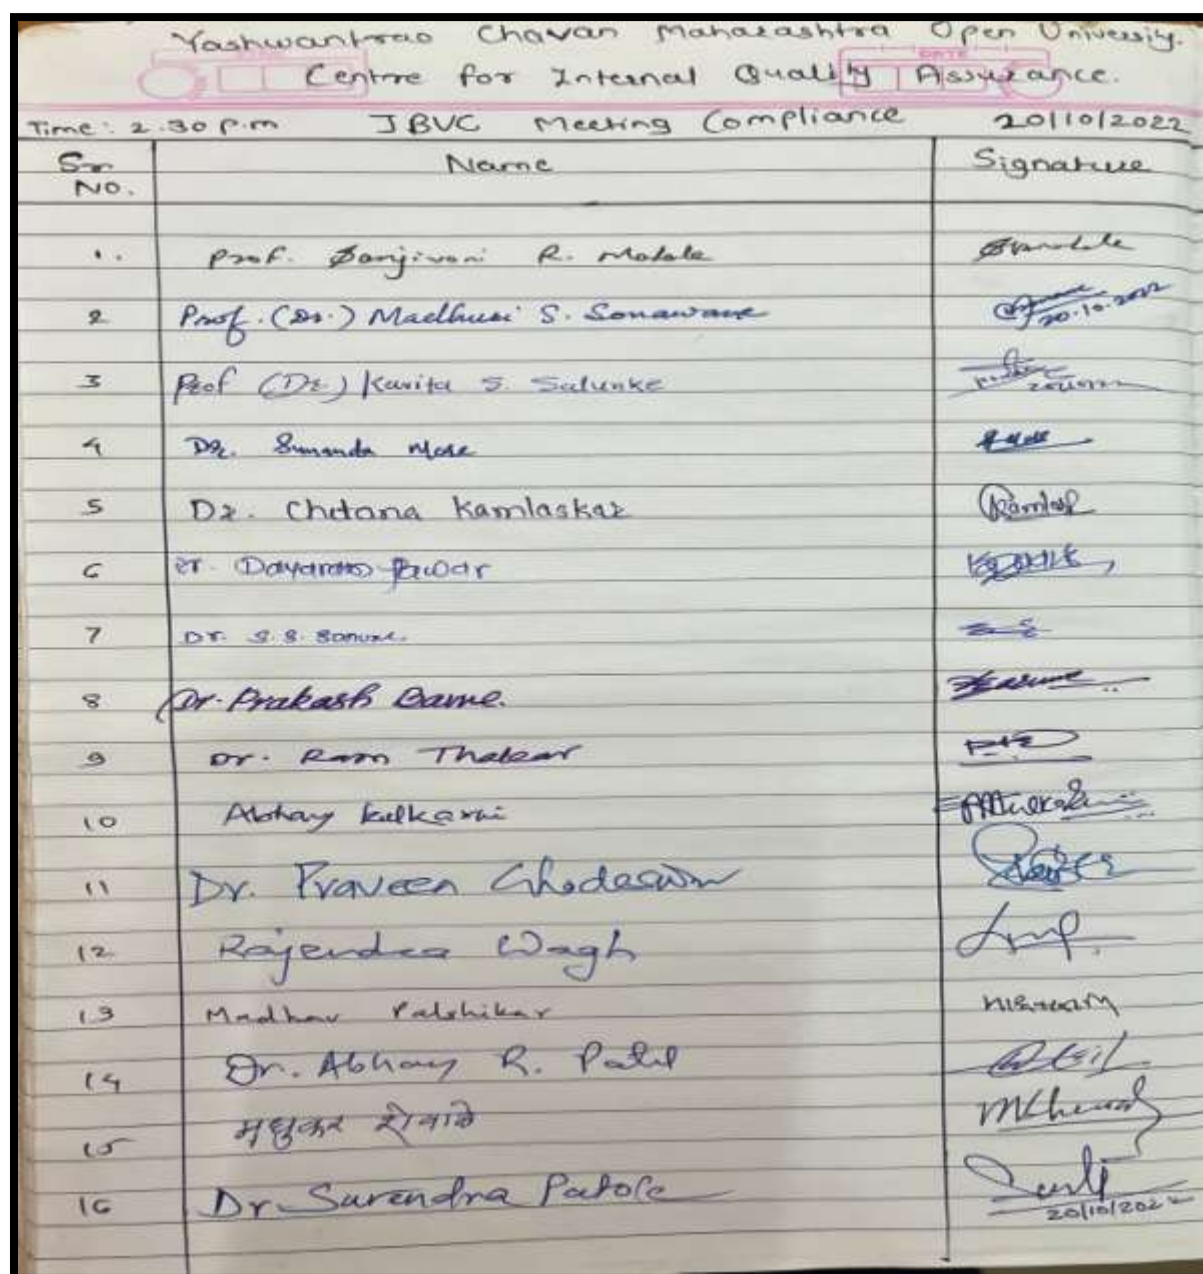 Yashwantrao Chavan Maharashtra Open University.
Centre for Internal Quality Assurance.
DATE
Time: 2.30 p.m JBVC Meeting Compliance 20/10/2022
Sr. No. Name Signature
1. Prof. Sanjivani R. Mahale
2 Prof. (Dr.) Madhuri S. Sonawane 20.10.2022
3 Prof (Dr.) Kavita S. Salunke
4 Dr. Sunanda More
5 Dr. Chetana Kamlaskar
6 Dayaram Pawar
7 Dr. S. S.
8 Dr. Prakash
9 Dr. Ram Thakar
10 Abhay Kulkarni
11 Dr. Praveen
12 Rajendra Wagh
13 Madhav Palshikar
14 Dr. Abhay R. Patil
15 मधुकर शेवाळे
16 Dr. Surendra Patole 20/10/2022